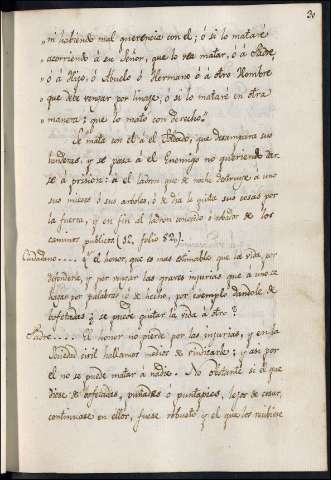 30
"ni habiendo mal querencia con el; ó si lo mataré
"acorriendo á su Señor, que lo vea matar, ó á Padre,
"ó á Hijo, ó Abuelo ó Hermano ó á otro Hombre
"que debe vengar por linaje, ó si lo mataré en otra
"manera; que lo mató con derecho."
Se mata con él á el Soldado, que desampara sus
banderas, y se pasa á el Enemigo no queriendo dar-
se á prision: á el ladron que de noche destruye á uno
sus mieses ó sus arboles, ó de dia le quita sus cosas por
la fuerza, y en fin al ladron conocido ó robador de los
caminos publicos (32. folio 520).
Ciudadano.... Y el honor, que es mas estimable que la vida, por
defenderle, y por vengar las graves injurias que á uno se
hagan por palabras ó de hecho, por exemplo dandole de
bofetadas ¿se puede quitar la vida á otro?
Padre.... El honor no pierde por las injurias, y en la
Sociedad civil hallamos medios de vindicarle; y asi por
el no se puede matar á nadie. No obstante si el que
diese de bofetadas, puñadas ó puntapies, lejos de cesar,
continuase en ellos, fuese robusto y el que los recibiere